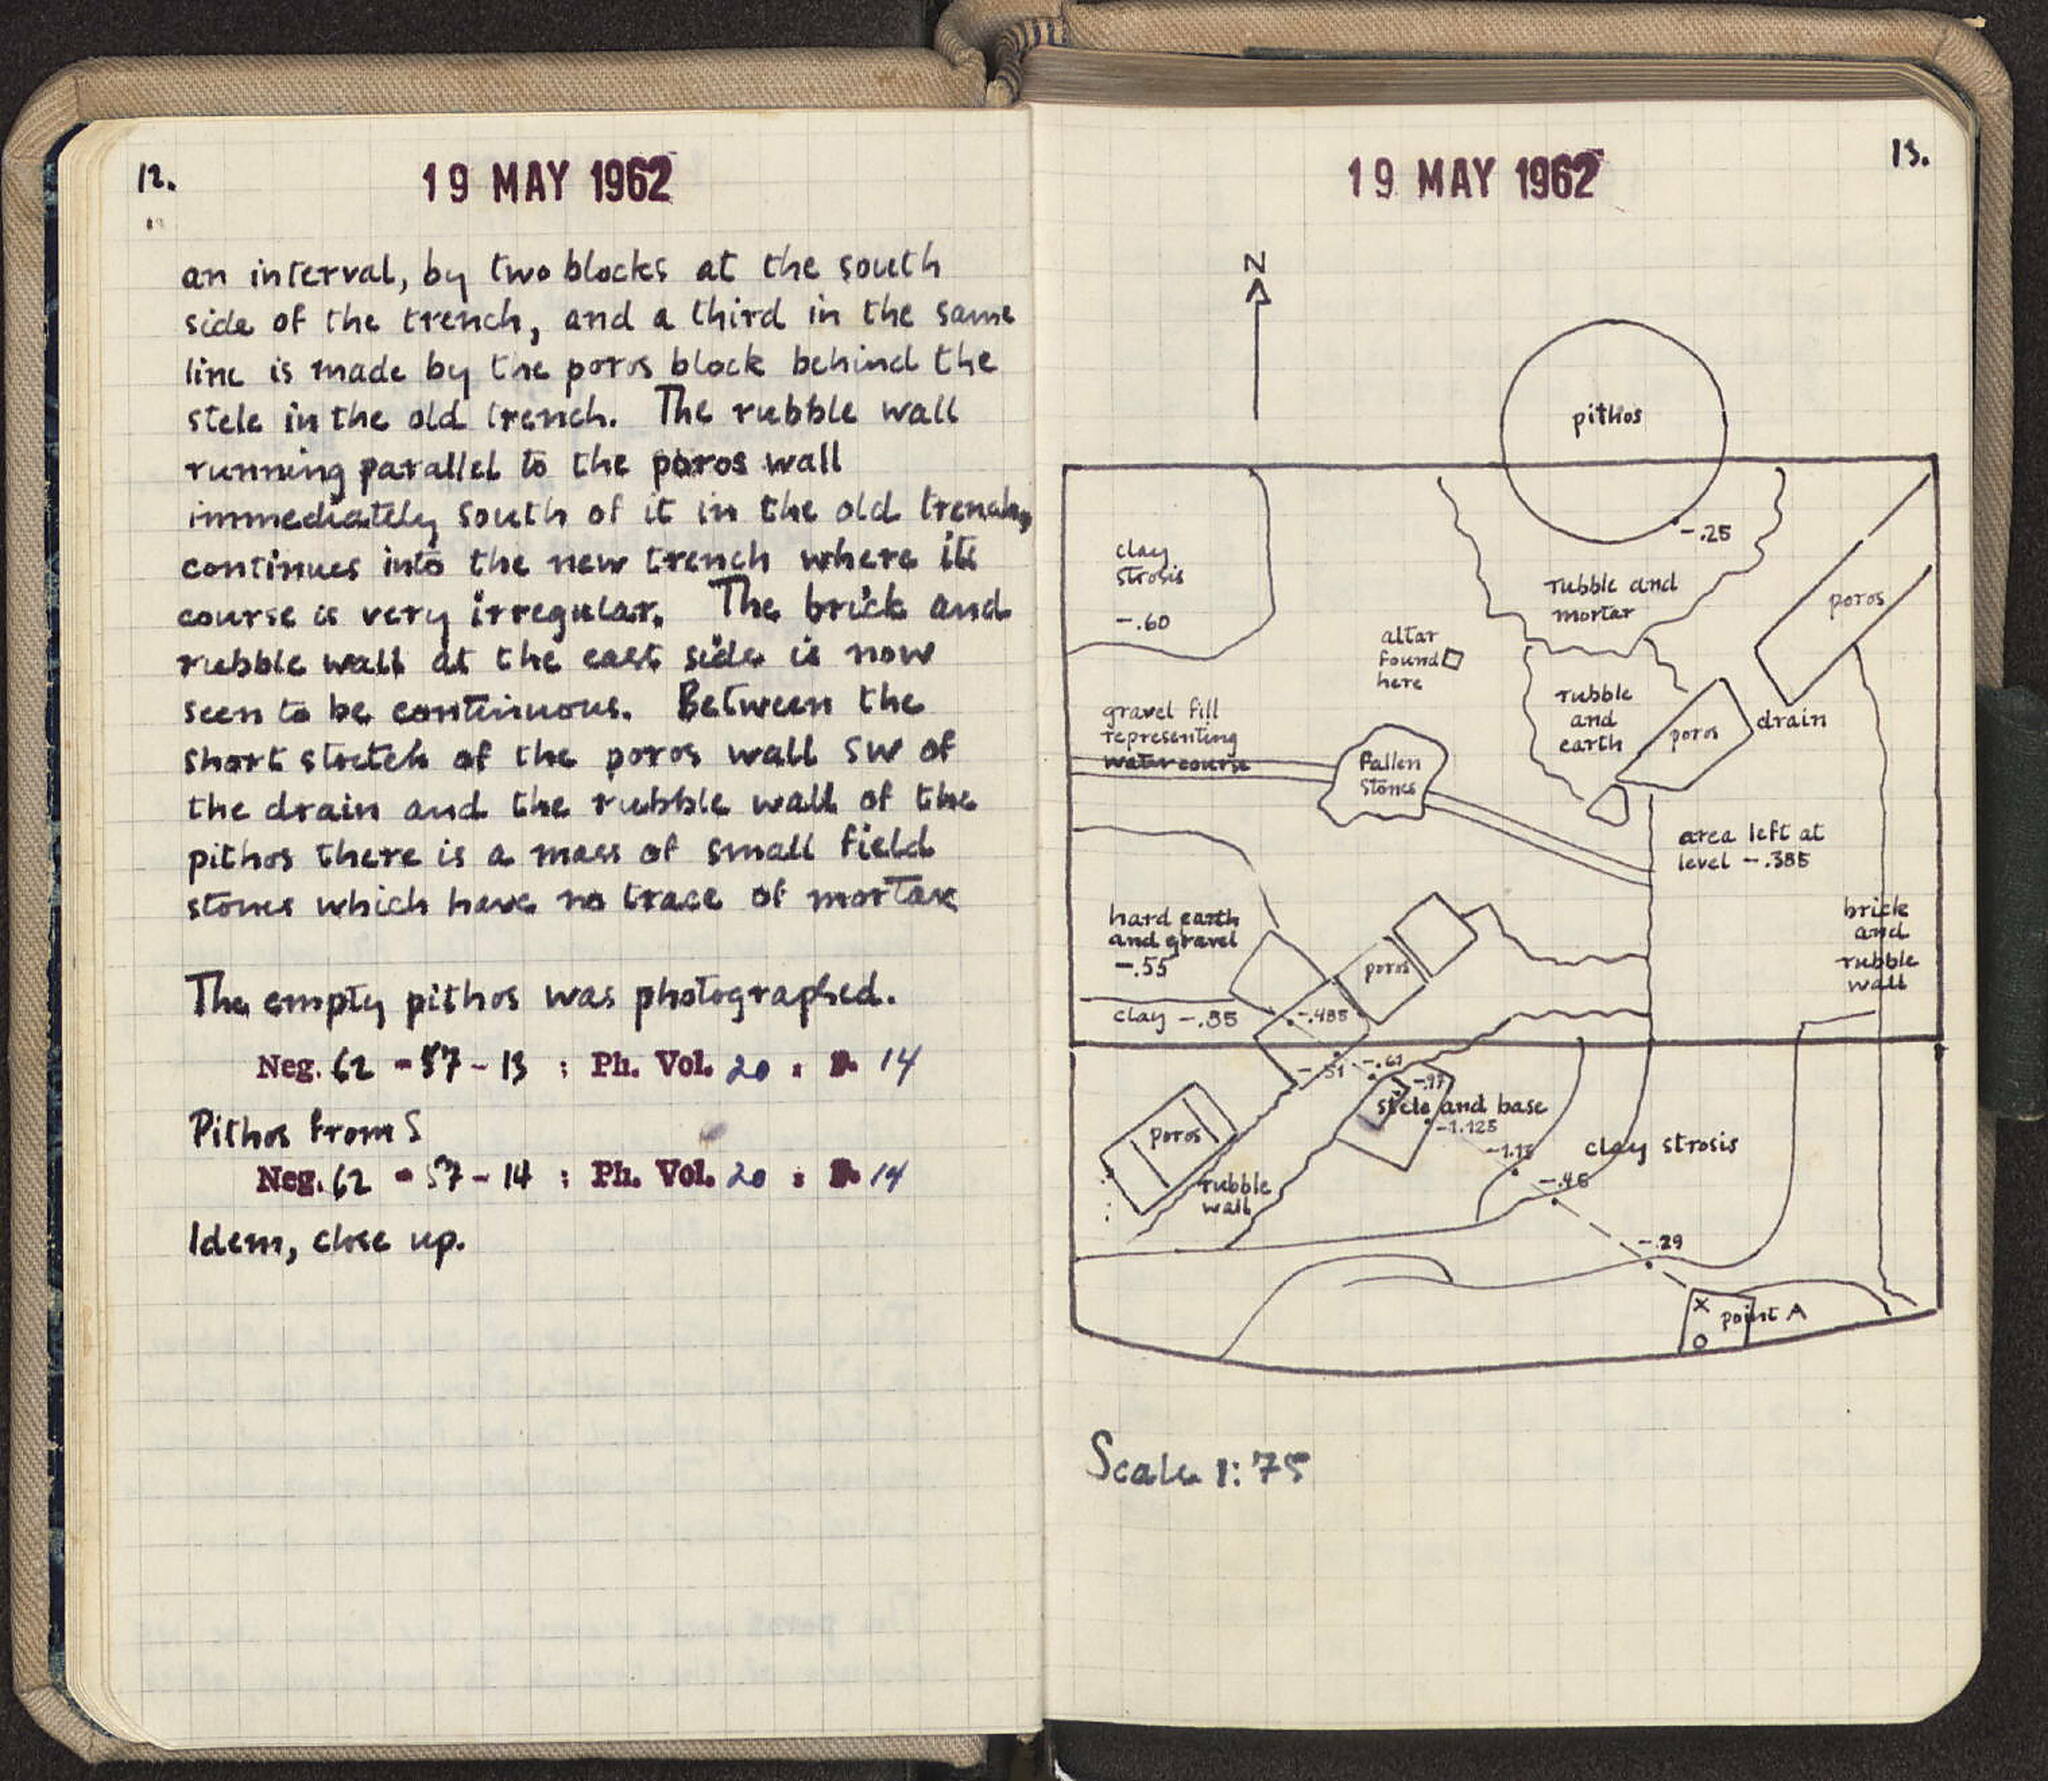 12.
19 MAY 1962
an interval, by two blocks at the south
side of the trench, and a third in the same
line is made by the poros block behind the
stele in the old trench. The rubble wall
running parallel to the poros wall
immediately south of it in the old trench,
continues into the new trench where its
course is very irregular. The brick and
rubble wall at the east side is now
seen to be continuous. Between the
short stretch of the poros wall SW of
the drain and the rubble wall of the
pithos there is a mass of small field
stones which have no trace of mortar
The empty pithos was photographed.
Neg. 62 - 57 - 13 ; Ph. Vol. 20 : P. 14
Pithos from S
Neg. 62 - 57 - 14 ; Ph. Vol. 20 : P. 14
Idem, close up.
19 MAY 1962
13.
N
pithos
-.25
clay
strosis
-.60
rubble and
mortar
poros
altar
found
here
rubble
and
earth
poros
drain
gravel fill
representing
watercourse
fallen
stones
area left at
level -.385
hard earth
and gravel
-.55
brick
and
rubble
wall
poros
clay -.55
-.485
-.51
-.61
-.97
stele and base
-1.125
poros
-1.13
clay strosis
rubble
wall
-.46
-.29
x
point A
o
Scale 1:75